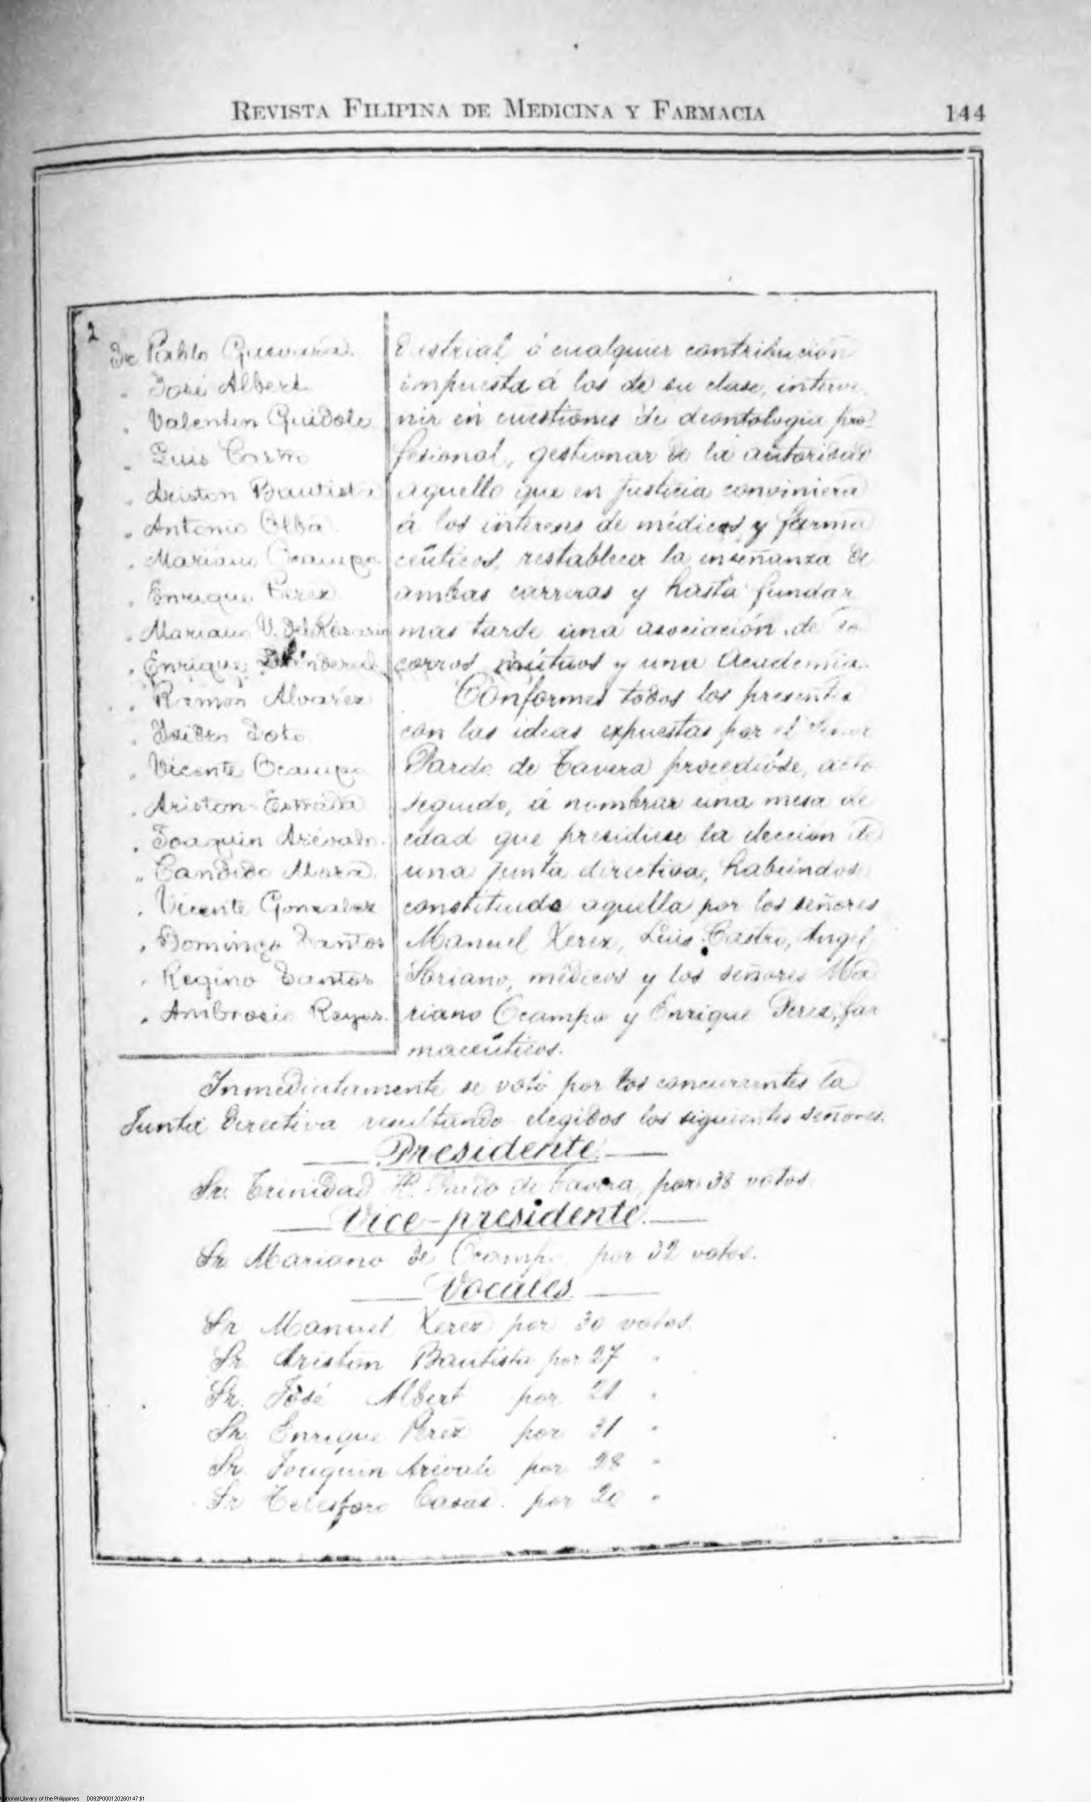 REVISTA FILIPINA DE MEDICINA Y FARMACIA 144
2
Sr. Pablo Guevara.
" José Albert
" Valentin Guidote
" Luis
" Ariston Bautista
" Antonio Alba
" Mariano Ocampo
" Enrique Perez
" Mariano V. del Rosario
" Enrique
" Ramón Alvarez
" Isidro
" Vicente Ocampo
" Ariston Estrada
" Joaquin Arévalo.
" Candido Mora
" Vicente Gonzalez
" Domingo Santos
" Regino Santos
" Ambrosio Reyes.
dustrial ó cualquier contribución
impuesta á los de su clase, interve-
nir en cuestiones de deontologia pro-
fesional, gestionar de la autoridad
aquello que en justicia conviniera
á los intereses de médicos y farma
céuticos, restablecer la enseñanza de
ambas carreras y hasta fundar
mas tarde una asociación de so
corros mútuos y una Academia.
Conformes todos los presentes
con las ideas expuestas por el Señor
Pardo de Tavera procedióse, acto
seguido, á nombrar una mesa de
edad que presidiese la elección de
una junta directiva, habiéndose
constituido aquella por los señores
Manuel Xerez, Luis Castro, Angel
Soriano, médicos y los señores Ma
riano Ocampo y Enrique Perez, far
macéuticos.
Inmediatamente se votó por los concurrentes la
Junta Directiva resultando elegidos los siguientes señores.
Presidente.
Sr. Trinidad H. Pardo de Tavera, por 38 votos.
Vice-presidente.
Sr. Mariano de Ocampo por 32 votos.
Vocales
Sr. Manuel Xerez por 30 votos.
Sr. Ariston Bautista por 27 "
Sr. José Albert por 21 "
Sr. Enrique Perez por 31 "
Sr. Joaquin Arévalo por 28 "
Sr. Telesforo Casas. por 20 "
National Library of the Philippines